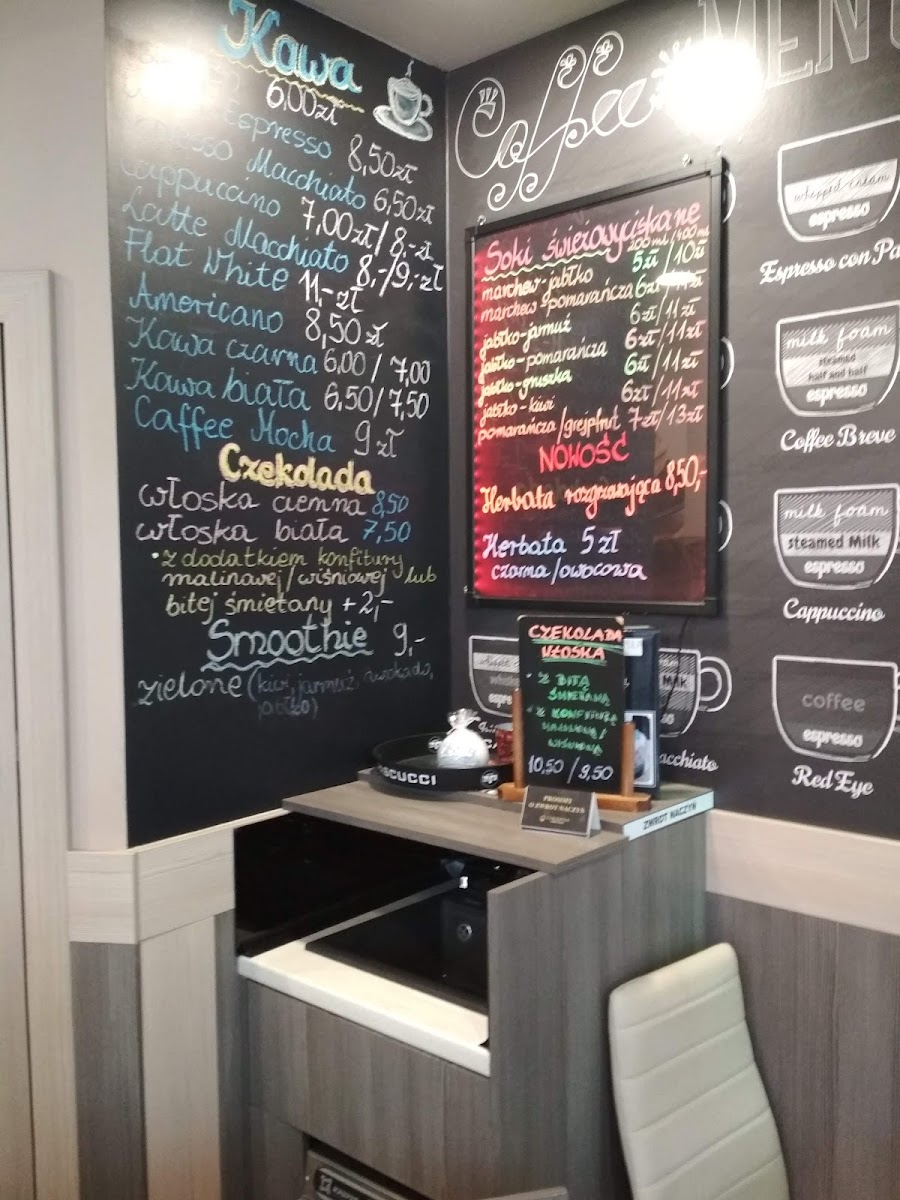 Kawa
6,00zł
Espresso 8,50zł
Macchiato 6,50zł
Cappuccino 7,00zł/8,-zł
Latte Macchiato 8,-/9,-zł
Flat White 11,-zł
Americano 8,50zł
Kawa czarna 6,00/7,00
Kawa biała 6,50/7,50
Caffee Mocha 9zł
Czekolada
włoska ciemna 8,50
włoska biała 7,50
• z dodatkiem konfitury
malinowej/wiśniowej lub
bitej śmietany +2,-
Smoothie 9,-
zielone (kiwi, jarmuż, awokado,
jabłko)
Coffee MENU
Soki świeżowyciskane
200 ml/400 ml
marchew-jabłko 5zł/10zł
marchew-pomarańcza 6zł/11zł
jabłko-jarmuż 6zł/11zł
jabłko-pomarańcza 6zł/11zł
jabłko-gruszka 6zł/11zł
jabłko-kiwi 6zł/11zł
pomarańcza/grejpfrut 7zł/13zł
NOWOŚĆ
Herbata rozgrzewająca 8,50,-
Herbata 5zł
czarna/owocowa
whipped cream
espresso
Espresso con Pa
milk foam
steamed
half and half
espresso
Coffee Breve
milk foam
steamed Milk
espresso
Cappuccino
coffee
espresso
Red Eye
Milk
acchiato
CZEKOLADA
WŁOSKA
• Z BITĄ
ŚMIETANĄ
• Z KONFITURĄ
MALINOWĄ/
WIŚNIOWĄ
10,50/9,50
SCUCCI
PROSIMY
O ZWROT NACZYŃ
ZWROT NACZYŃ